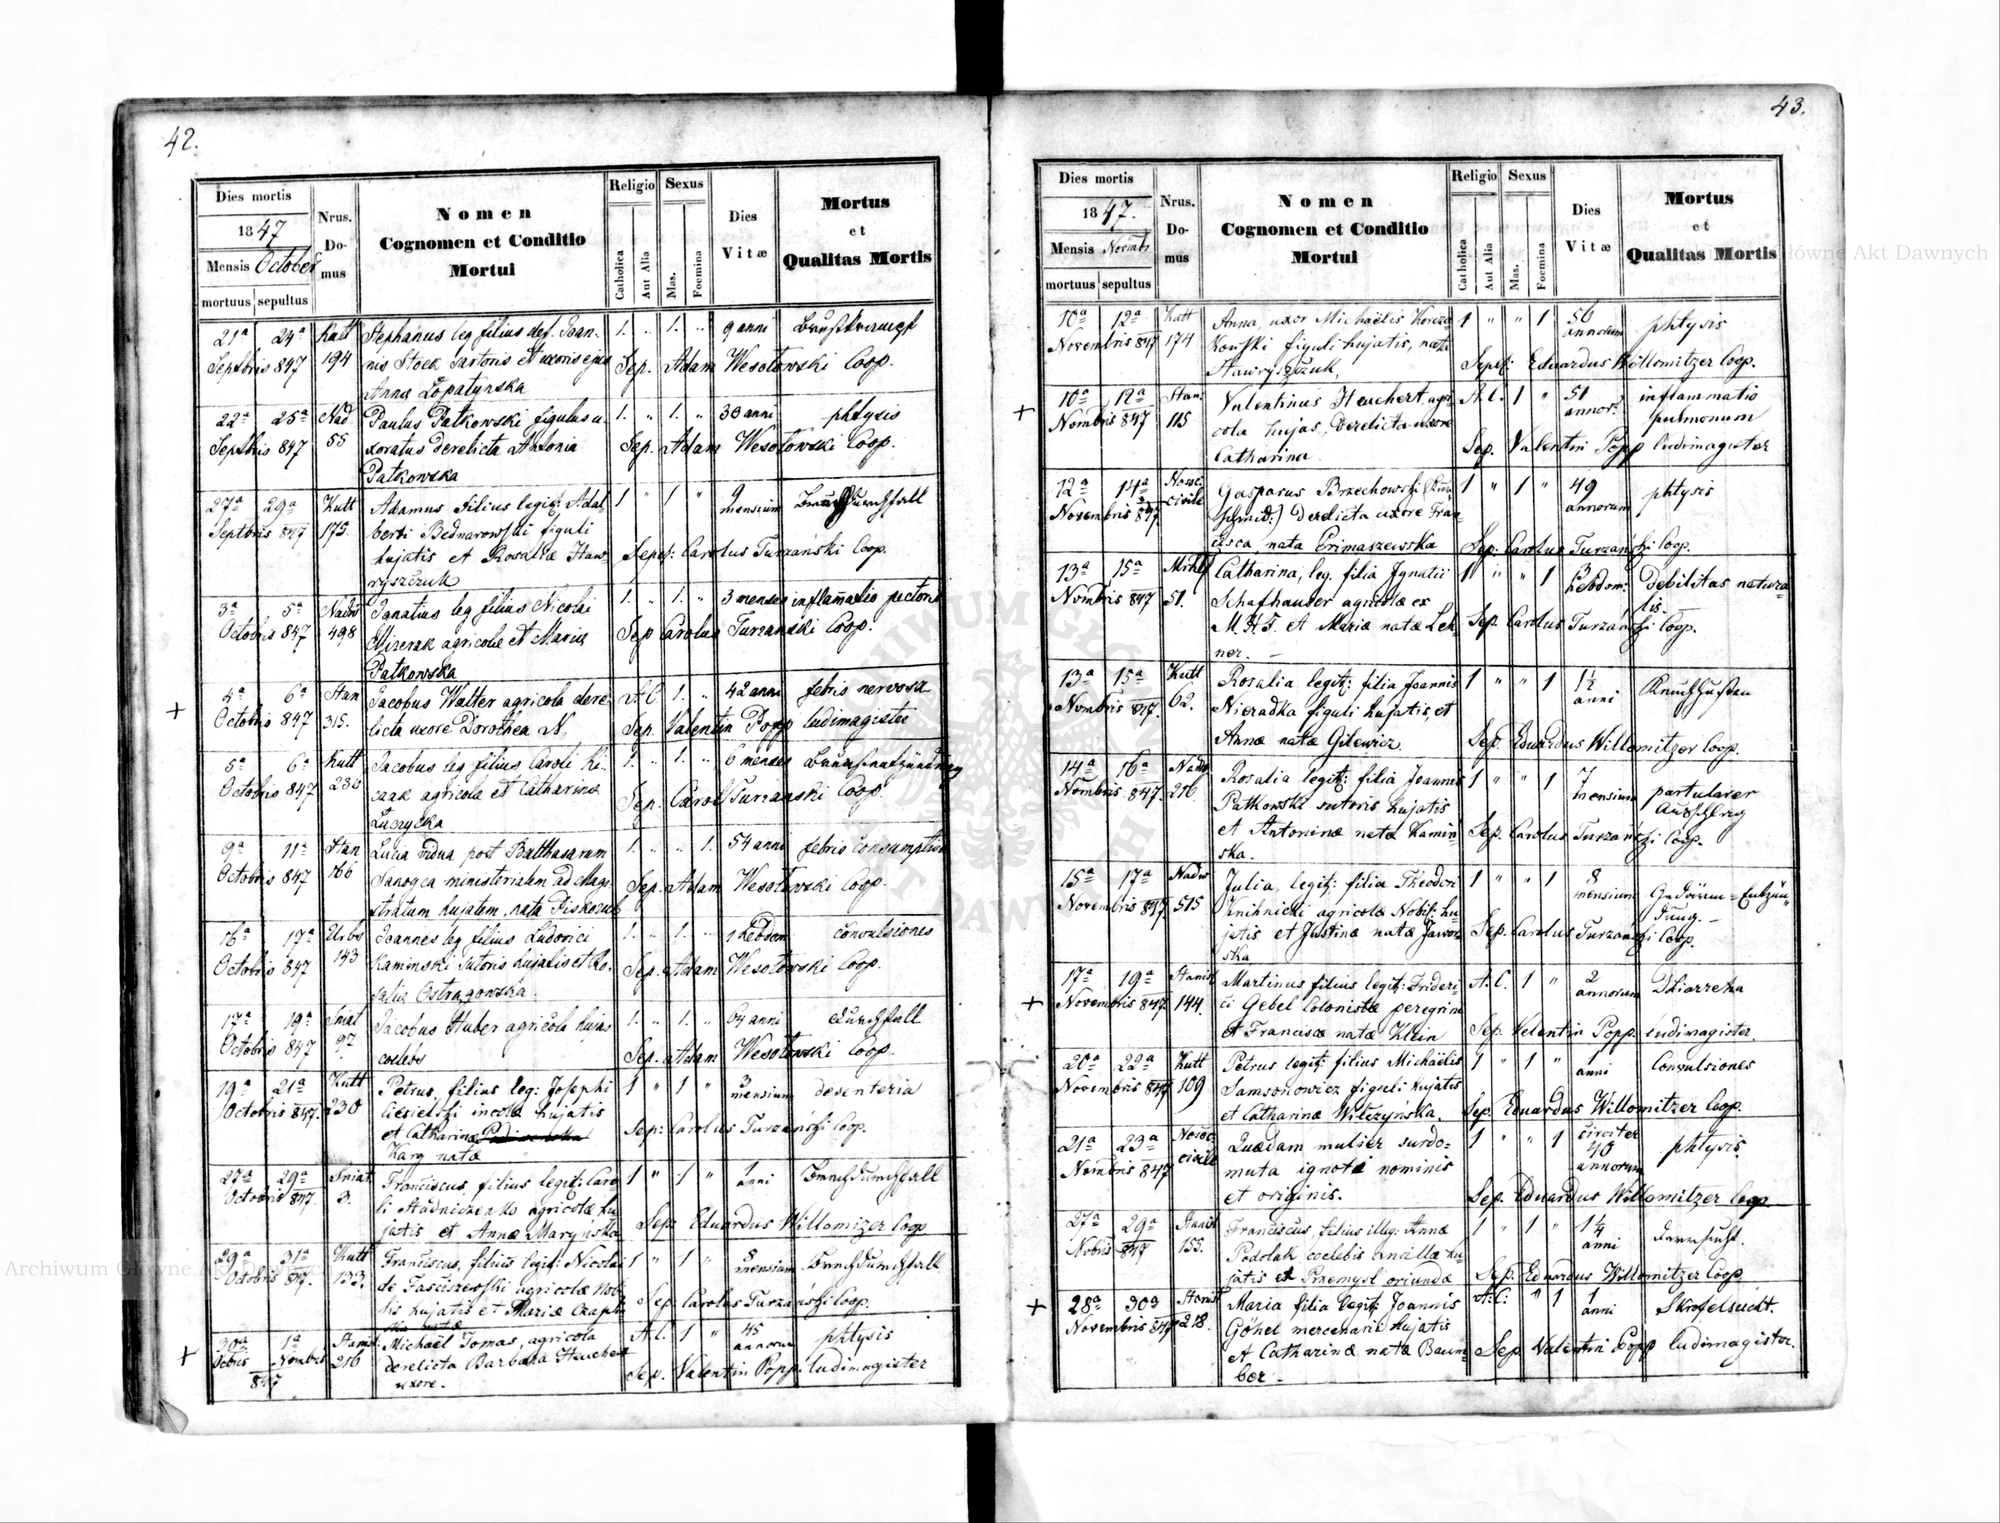 42.
Dies mortis
1847
Mensis October
mortuus sepultus
Nrus. Do- mus
Nomen
Cognomen et Conditio
Mortui
Religio
Catholica
Aut Alia
Sexus
Mas.
Foemina
Dies
Vitæ
Mortus
et
Qualitas Mortis
21ª 24ª Kutt Stephanus leg filius def. Joan- 1. " 1. " 9 anni
Septbris 847 194 nis Stock sartoris et uxoris ejus Sep. Adam Wesołowski Coop.
Anna Łopatyńska
22ª 25ª Nad Paulus Patkowski figulus u- 1. " 1. " 30 anni phtysis
Septbris 847 55 xoratus derelicta Antonia Sep. Adam Wesołowski Coop.
Patkowska
27ª 29ª Kutt Adamus filius legit: Adal- 1 " 1 " 9 mensium
Septbris 847 175. berti Bednarowski figuli
hujatis et Rosaliæ Haw- Sepef: Carolus Turzański Coop.
ryszczuk
3ª 5ª Nadw Ignatius leg filius Nicolai 1. " 1. " 3 menses inflamatio pectoris
Octobris 847 498 Mizerak agricolæ et Maria Sep Carolus Turzanski Coop.
Patkowska
+ 4ª 6ª Stan Jacobus Walter agricola dere- A.C. 1. " 42 anni febris nervosa
Octobris 847 315. licta uxore Dorothea N. Sep. Valentin Popp ludimagister
5ª 6ª Kutt Jacobus leg filius Caroli Ki- 1. " 1. " 6 menses
Octobris 847 230 caak agricolæ et Catharinæ Sep. Carol Turzanski Coop.
Łuczycka
9ª 11ª Stan Lucia vidua post Balthasarum 1. " " 1. 54 anni febris consumptiva
Octobris 847 166 Sanojca ministerialem ad Magi- Sep. Adam Wesołowski Coop.
stratum hujatem, nata Fiskozub
16ª 17ª Urbs Joannes leg filius Ludovici 1. " 1. " 1 hebdom convulsiones
Octobris 847 143 Kaminski sutoris hujatis et Ro- Sep. Adam Wesołowski Coop.
salia Ostrągowska.
17ª 19ª Sniat Jacobus Huber agricola hujas 1. " 1. " 64 anni durchfall
Octobris 847 97 coelebs Sep. Adam Wesołowski Coop.
19ª 21ª Kutt Petrus, filius leg: Josephi 1 " 1 " 3 mensium desenteria
Octobris 847. 230 Ciesielski incolæ hujatis
et Catharinæ Sep: Carolus Turzański Coop.
Karg natæ
27ª 29ª Sniat. Franciscus, filius legit: Caro- 1 " 1 " 1 anni
Octobris 847. 3. li Stadniczenko agricolæ hu-
jatis et Annæ Maryńska Sep: Eduardus Willomizer Coop
29ª 31ª Kutt Franciscus, filius legit: Nicolai 1 " 1 " 8 mensium
Octobris 847. 133. agricolæ Nobi-
lis hujatis et Mariæ Sep. Carolus Turzański Coop.
+ 30ª 1ª Stanis Michaël Tomas, agricola A.C. 1 " 45 annorum phtysis
8bris Novmbris 216 derelicta Barbara Heuchert
847 uxore. Sep. Valentin Popp ludimagister
43.
Dies mortis
1847.
Mensis Novmbr.
mortuus sepultus
Nrus. Do- mus
Nomen
Cognomen et Conditio
Mortui
Religio
Catholica
Aut Alia
Sexus
Mas.
Foemina
Dies
Vitæ
Mortus
et
Qualitas Mortis
10ª 12ª Kutt Anna, uxor Michaëlis Korcza- 1 " " 1 56 annorum phtysis
Novembris 847 174 kowski figuli hujatis, nata
Hawryszczuk, Sepef: Eduardus Willomitzer Coop.
+ 10ª 12ª Stan. Valentinus Heuchert, agri- A.C. 1 " 51 annor: inflammatio
Novmbris 847 115 cola hujas, derelicta uxore pulmonum
Catharina. Sep. Valentin Popp ludimagister
12ª 14ª Nosoc. civile Gasparus Brzechowski 1 " 1 " 49 annorum phtysis
Novembris 847 derelicta uxore Fran-
cisca, nata Grimaszewska Sep: Carolus Turzański Coop.
13ª 15ª Mikul Catharina, leg. filia Ignatii 1 " " 1 3 hebdom: debilitas natura-
Novmbris 847 51. Schafhauser agricolæ ex lis.
M.H.F. et Mariæ natæ Leh- Sep Carolus Turzański Coop.
ner. —
13ª 15ª Kutt Rosalia legit: filia Joannis 1 " " 1 1½ anni
Novmbris 847. 62. Nieradka figuli hujatis, et
Annæ natæ Gilewicz. Sep. Eduardus Willomitzer Coop.
14ª 16ª Nadw. Rosalia legit: filia Joannis 1 " " 1 7 mensium
Novmbris 847. 216. Patkowski sutoris hujatis
et Antoninæ natæ Kamiń- Sep. Carolus Turzański Coop.
ska.
15ª 17ª Nadw Julia, legit: filia Theodori 1 " " 1 8 mensium
Novembris 847 515 Knihnicki agricolæ Nobil: hu-
jatis et Justinæ natæ Jawor- Sep. Carolus Turzański Coop.
ska
+ 17ª 19ª Stanisł Martinus filius legit: Frideri- A.C. 1 " 2 annorum
Novembris 847. 144. ci Gebel Colonistæ peregrini
et Franciscæ natæ Klein Sep. Velentin Popp. ludimagister.
20ª 22ª Kutt Petrus legit: filius Michaëlis 1 " 1 " 1 anni Convulsiones
Novembris 847 109 Samsonowicz figuli hujatis
et Catharinæ Wilczyńska. Sep. Eduardus Willomitzer Coop.
21ª 23ª Nosoc. civile Quædam mulier surdo- 1 " " 1 circiter 40 annorum phtysis.
Novmbris 847 muta ignoti nominis
et originis. Sep. Eduardus Willomitzer Coop.
27ª 29ª Stanisł Franciscus, filius illeg: Annæ 1 " 1 " 1¼ anni
Nobris 847 155. Podolak coelebis ancillæ hu-
jatis et Przemysl oriundæ Sep. Eduardus Willomitzer Coop
+ 28ª 30ª Stanisł Maria filia legit: Joannis A.C: " 1 1 anni Skrofelsucht.
Novembris 847 218. Göhel mercenarii hujatis
et Catharinæ natæ Baum- Sep Valentin Popp ludimagister.
ber.
Archiwum Główne Akt Dawnych